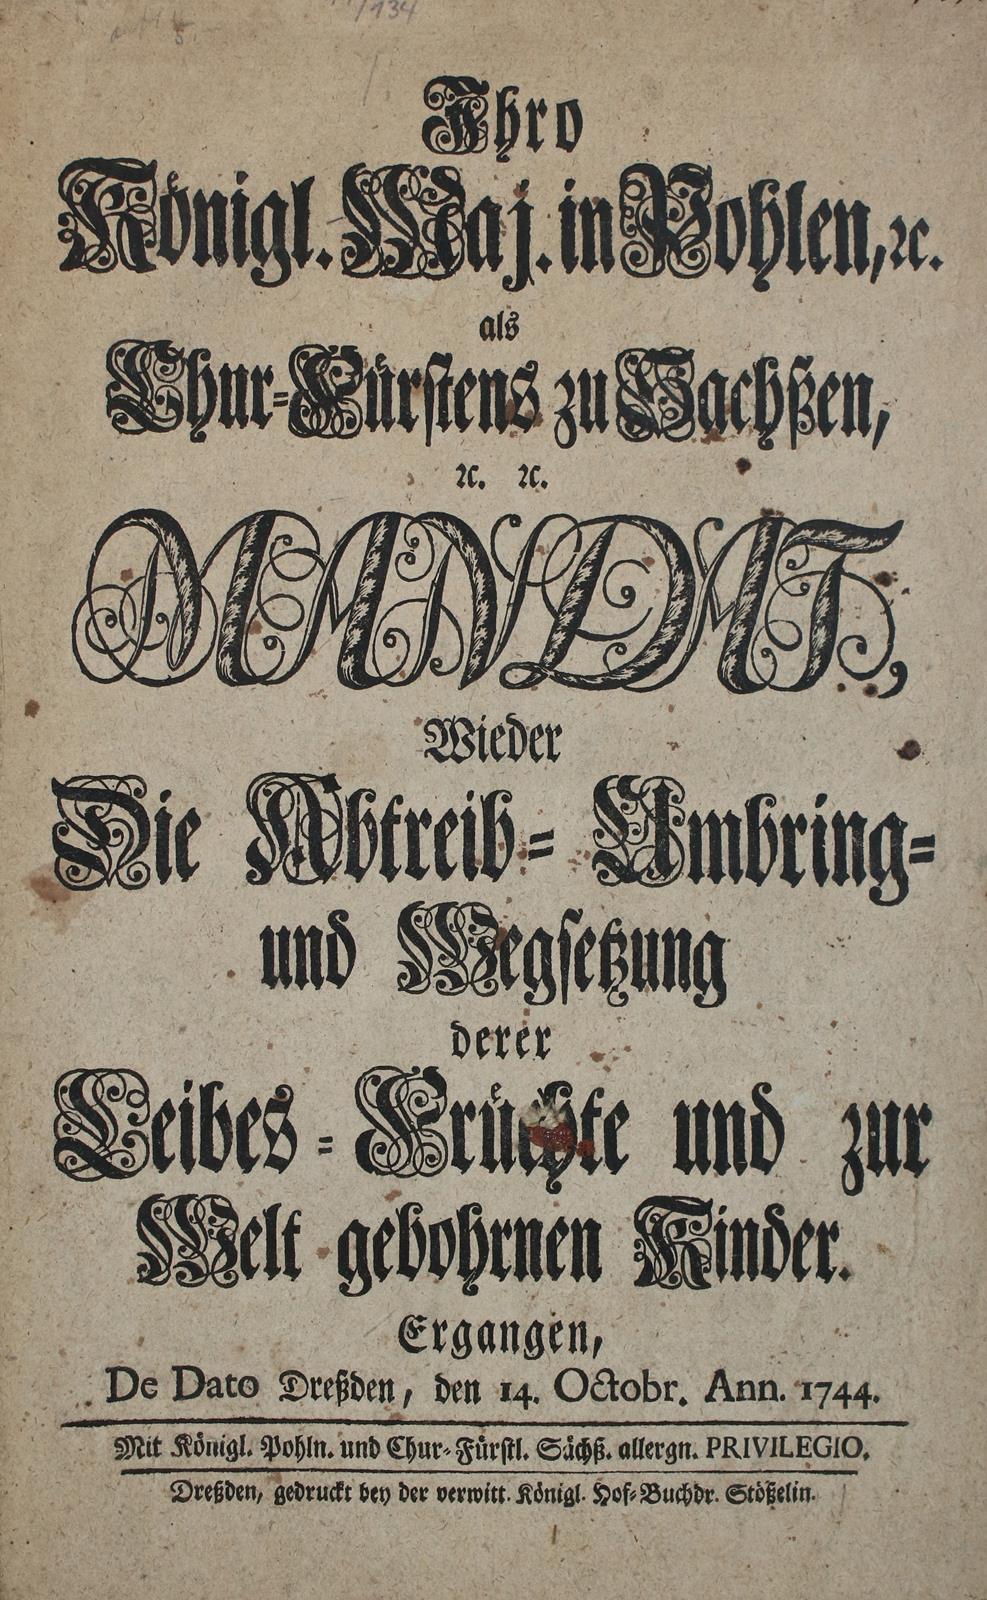 134
Ihro
Königl. Maj. in Pohlen, ꝛc.
als
Chur-Fürstens zu Sachßen,
ꝛc. ꝛc.
MANDAT,
Wieder
Die Abtreib- Umbring-
und Wegsetzung
derer
Leibes-Früchte und zur
Welt gebohrnen Kinder.
Ergangen,
De Dato Dreßden, den 14. Octobr. Ann. 1744.
Mit Königl. Pohln. und Chur-Fürstl. Sächß. allergn. PRIVILEGIO.
Dreßden, gedruckt bey der verwitt. Königl. Hof-Buchdr. Stößelin.